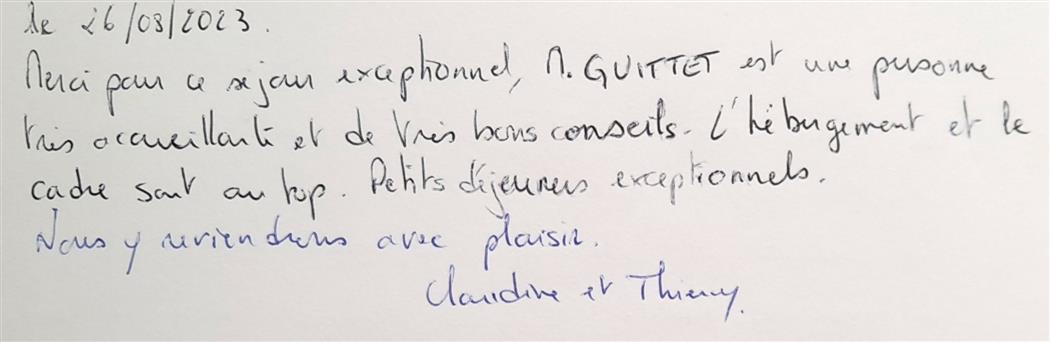 le 26/08/2023.
Merci pour ce séjour exceptionnel, M. GUITTET est une personne
très accueillante et de très bons conseils. L'hébergement et le
cadre sont au top. Petits déjeuners exceptionnels.
Nous y reviendrons avec plaisir.
Claudine et Thierry.